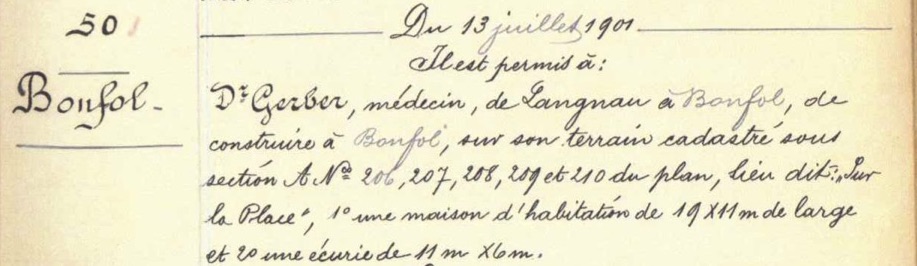 50
Bonfol-
Du 13 juillet 1901
Il est permis à:
Dr Gerber, médecin, de Langnau à Bonfol, de
construire à Bonfol, sur son terrain cadastré sous
section A Nos 206, 207, 208, 209 et 210 du plan, lieu dit: „Sur
la Place", 1º une maison d'habitation de 19 X 11 m de large
et 2º une écurie de 11 m X 6 m.